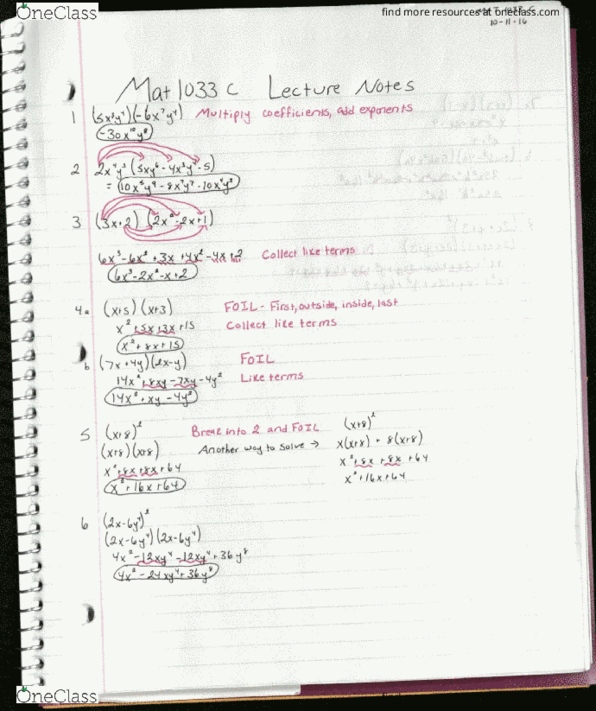 OneClass
find more resources at oneclass.com
10-11-16
Mat 1033 C Lecture Notes
1 (5x³y⁴)(-6x⁷y⁴) Multiply coefficients, add exponents
-30x¹⁰y⁸
2 2x⁴y³(5xy⁶-4x³y⁴-5)
= 10x⁵y⁹-8x⁷y⁷-10x⁴y³
3 (3x+2)(2x²-2x+1)
6x³-6x²+3x+4x²-4x+2 Collect like terms
6x³-2x²-x+2
4a (x+5)(x+3) FOIL - First, outside, inside, last
x²+5x+3x+15 Collect like terms
x²+8x+15
b (7x+4y)(2x-y) FOIL
14x²+8xy-7xy-4y² Like terms
14x²+xy-4y²
5 (x+8)² Break into 2 and FOIL (x+8)²
(x+8)(x+8) Another way to solve → x(x+8) + 8(x+8)
x²+8x+8x+64 x²+8x+8x+64
x²+16x+64 x²+16x+64
6 (2x-6y⁴)²
(2x-6y⁴)(2x-6y⁴)
4x²-12xy⁴-12xy⁴+36y⁸
4x²-24xy⁴+36y⁸
OneClass